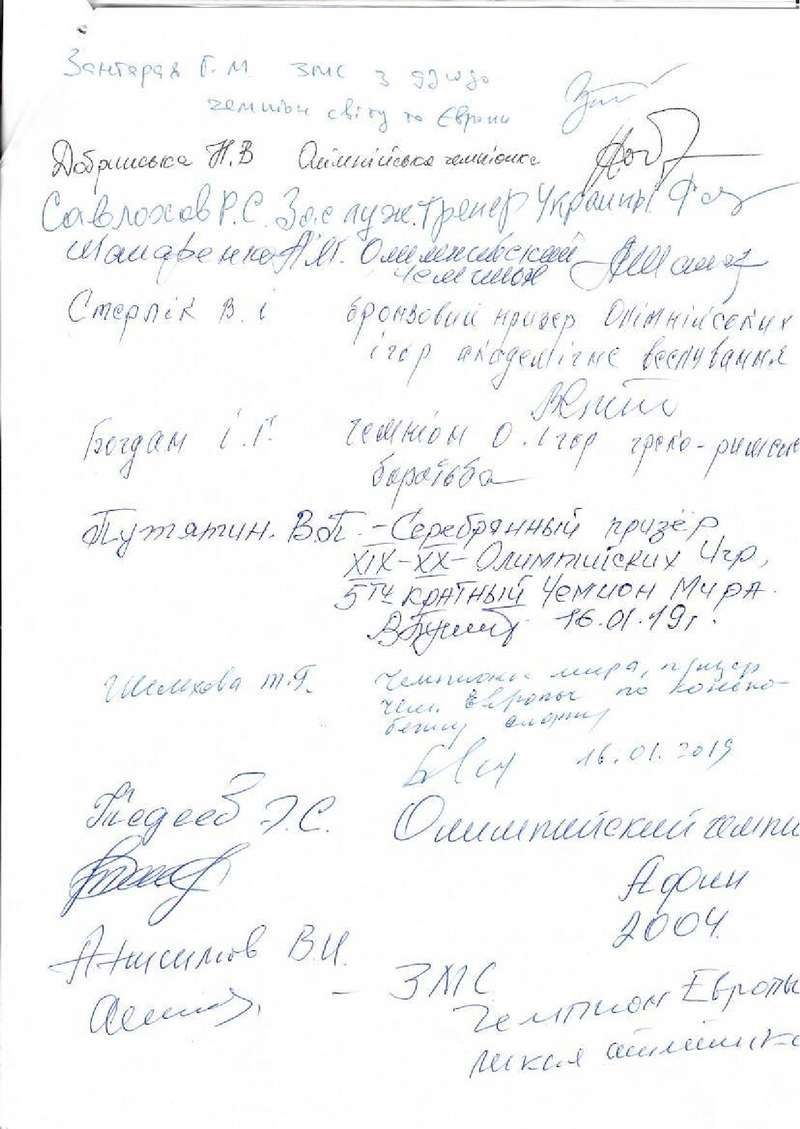 Зантарая Г.М ЗМС з дзюдо
чемпіон світу та Європи
Добринська Н.В Олімпійська чемпіонка
Савлохов Р.С. Заслуж. тренер Украины
Шапаренко А.М. Олимпийский
чемпион
Стерлік В.І бронзовий призер Олімпійських
ігор академічне веслування
Богдан І.Г. чемпіон О. Ігор греко-римська
боротьба
Путятин. В.П. - Серебрянный призёр
XIX-XX- Олимпийских Игр,
5ти кратный Чемион Мира.
16.01.19г.
Шелехова Т.Г. Чемпионка мира, призер
чем. Европы по конько-
бежн спорту
16.01.2019
Тедеев Э.С. Олимпийский чемпи
Афин
2004.
Анисимов В.И.
- ЗМС
Чемпион Европы
легкая атлетика